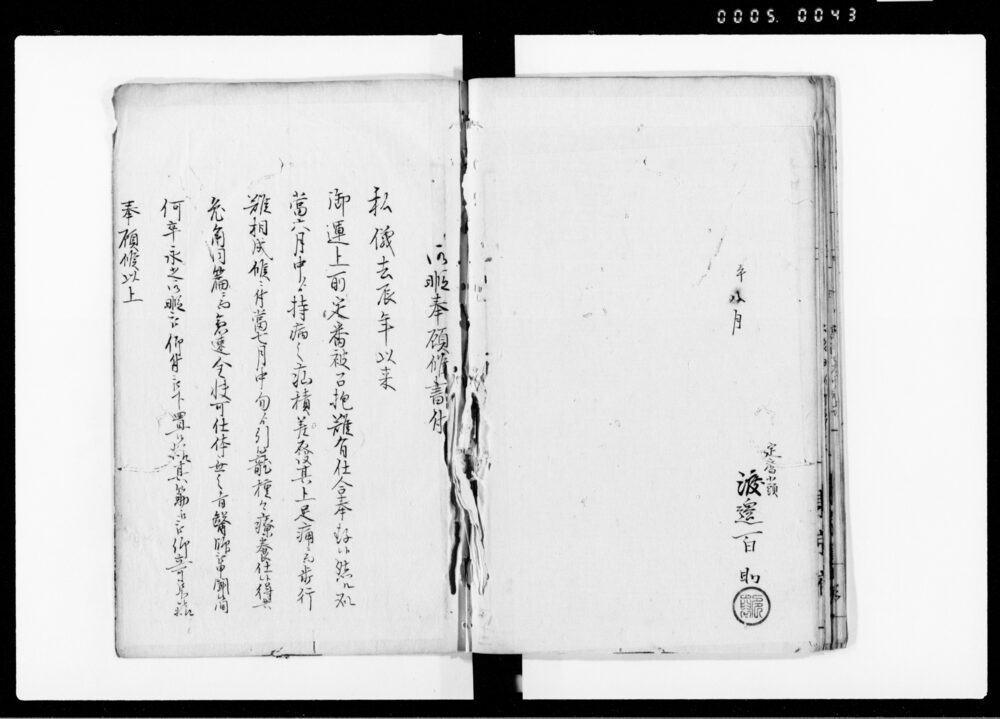 0005. 0043
午
八月
定番小頭
渡邉百助
御暇奉願候書付
私儀去辰年以来
御運上所定番被召抱難有仕合奉存候然ル処
當六月中ゟ持病之疝積差発其上足痛ニ而歩行
難相成候ニ付當七月中旬ゟ引籠種々療養仕候得共
兎角同篇ニ而急速全快可仕体無之旨醫師申聞候間
何卒永之御暇被仰付被下置候様其筋
奉願候以上